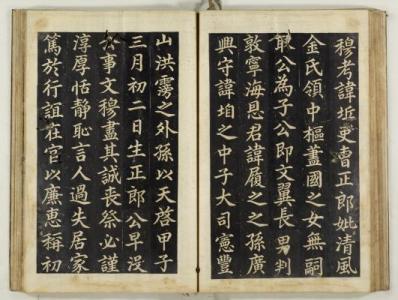 穆考諱坵吏曹正郎妣清風
金氏領中樞藎國之女無嗣
取公為子公即文翼長男判
敦寧海恩君諱履之之孫廣
興守諱之中子大司憲豐
山洪霶之外孫以天啓甲子
三月初二日生正郎公早沒
公事文穆盡其誠喪祭必謹
淳厚恬静恥言人過失居家
篤於行誼在官以廉惠稱初